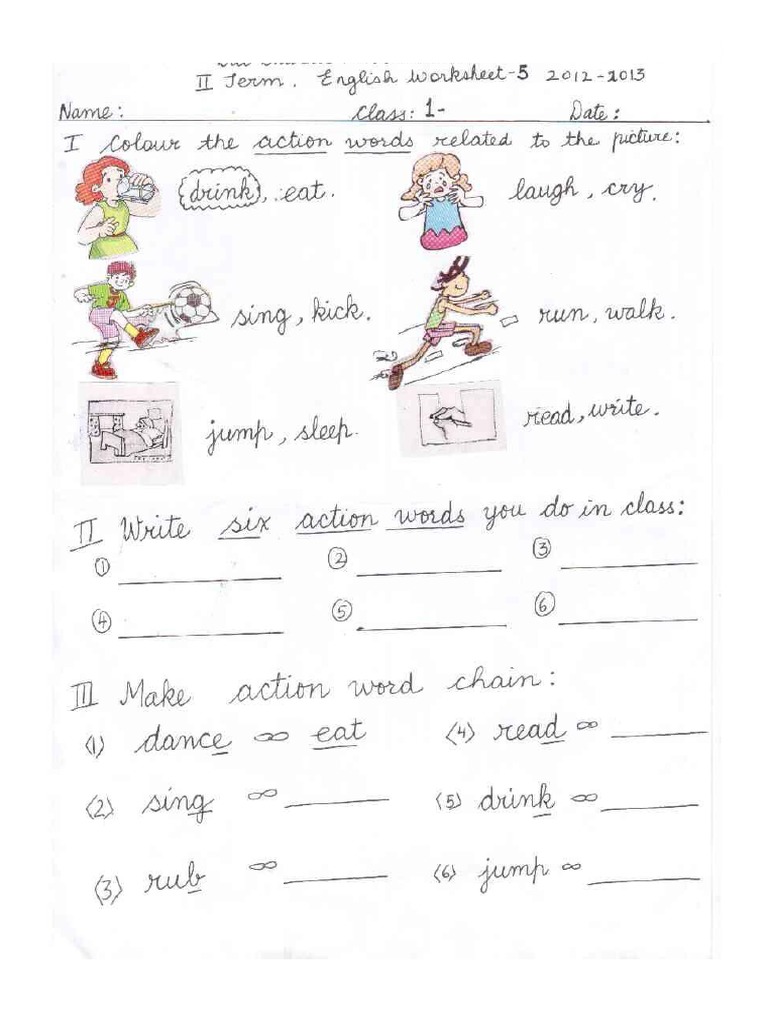 II Term. English Worksheet-5 2012-2013
Name: Class: 1- Date:
I Colour the action words related to the picture:
drink, eat. laugh, cry.
sing, kick. run, walk.
jump, sleep. read, write.
II Write six action words you do in class:
① ② ③
④ ⑤ ⑥
III Make action word chain:
(1) dance ∞ eat (4) read ∞
(2) sing ∞ (5) drink ∞
(3) rub ∞ (6) jump ∞